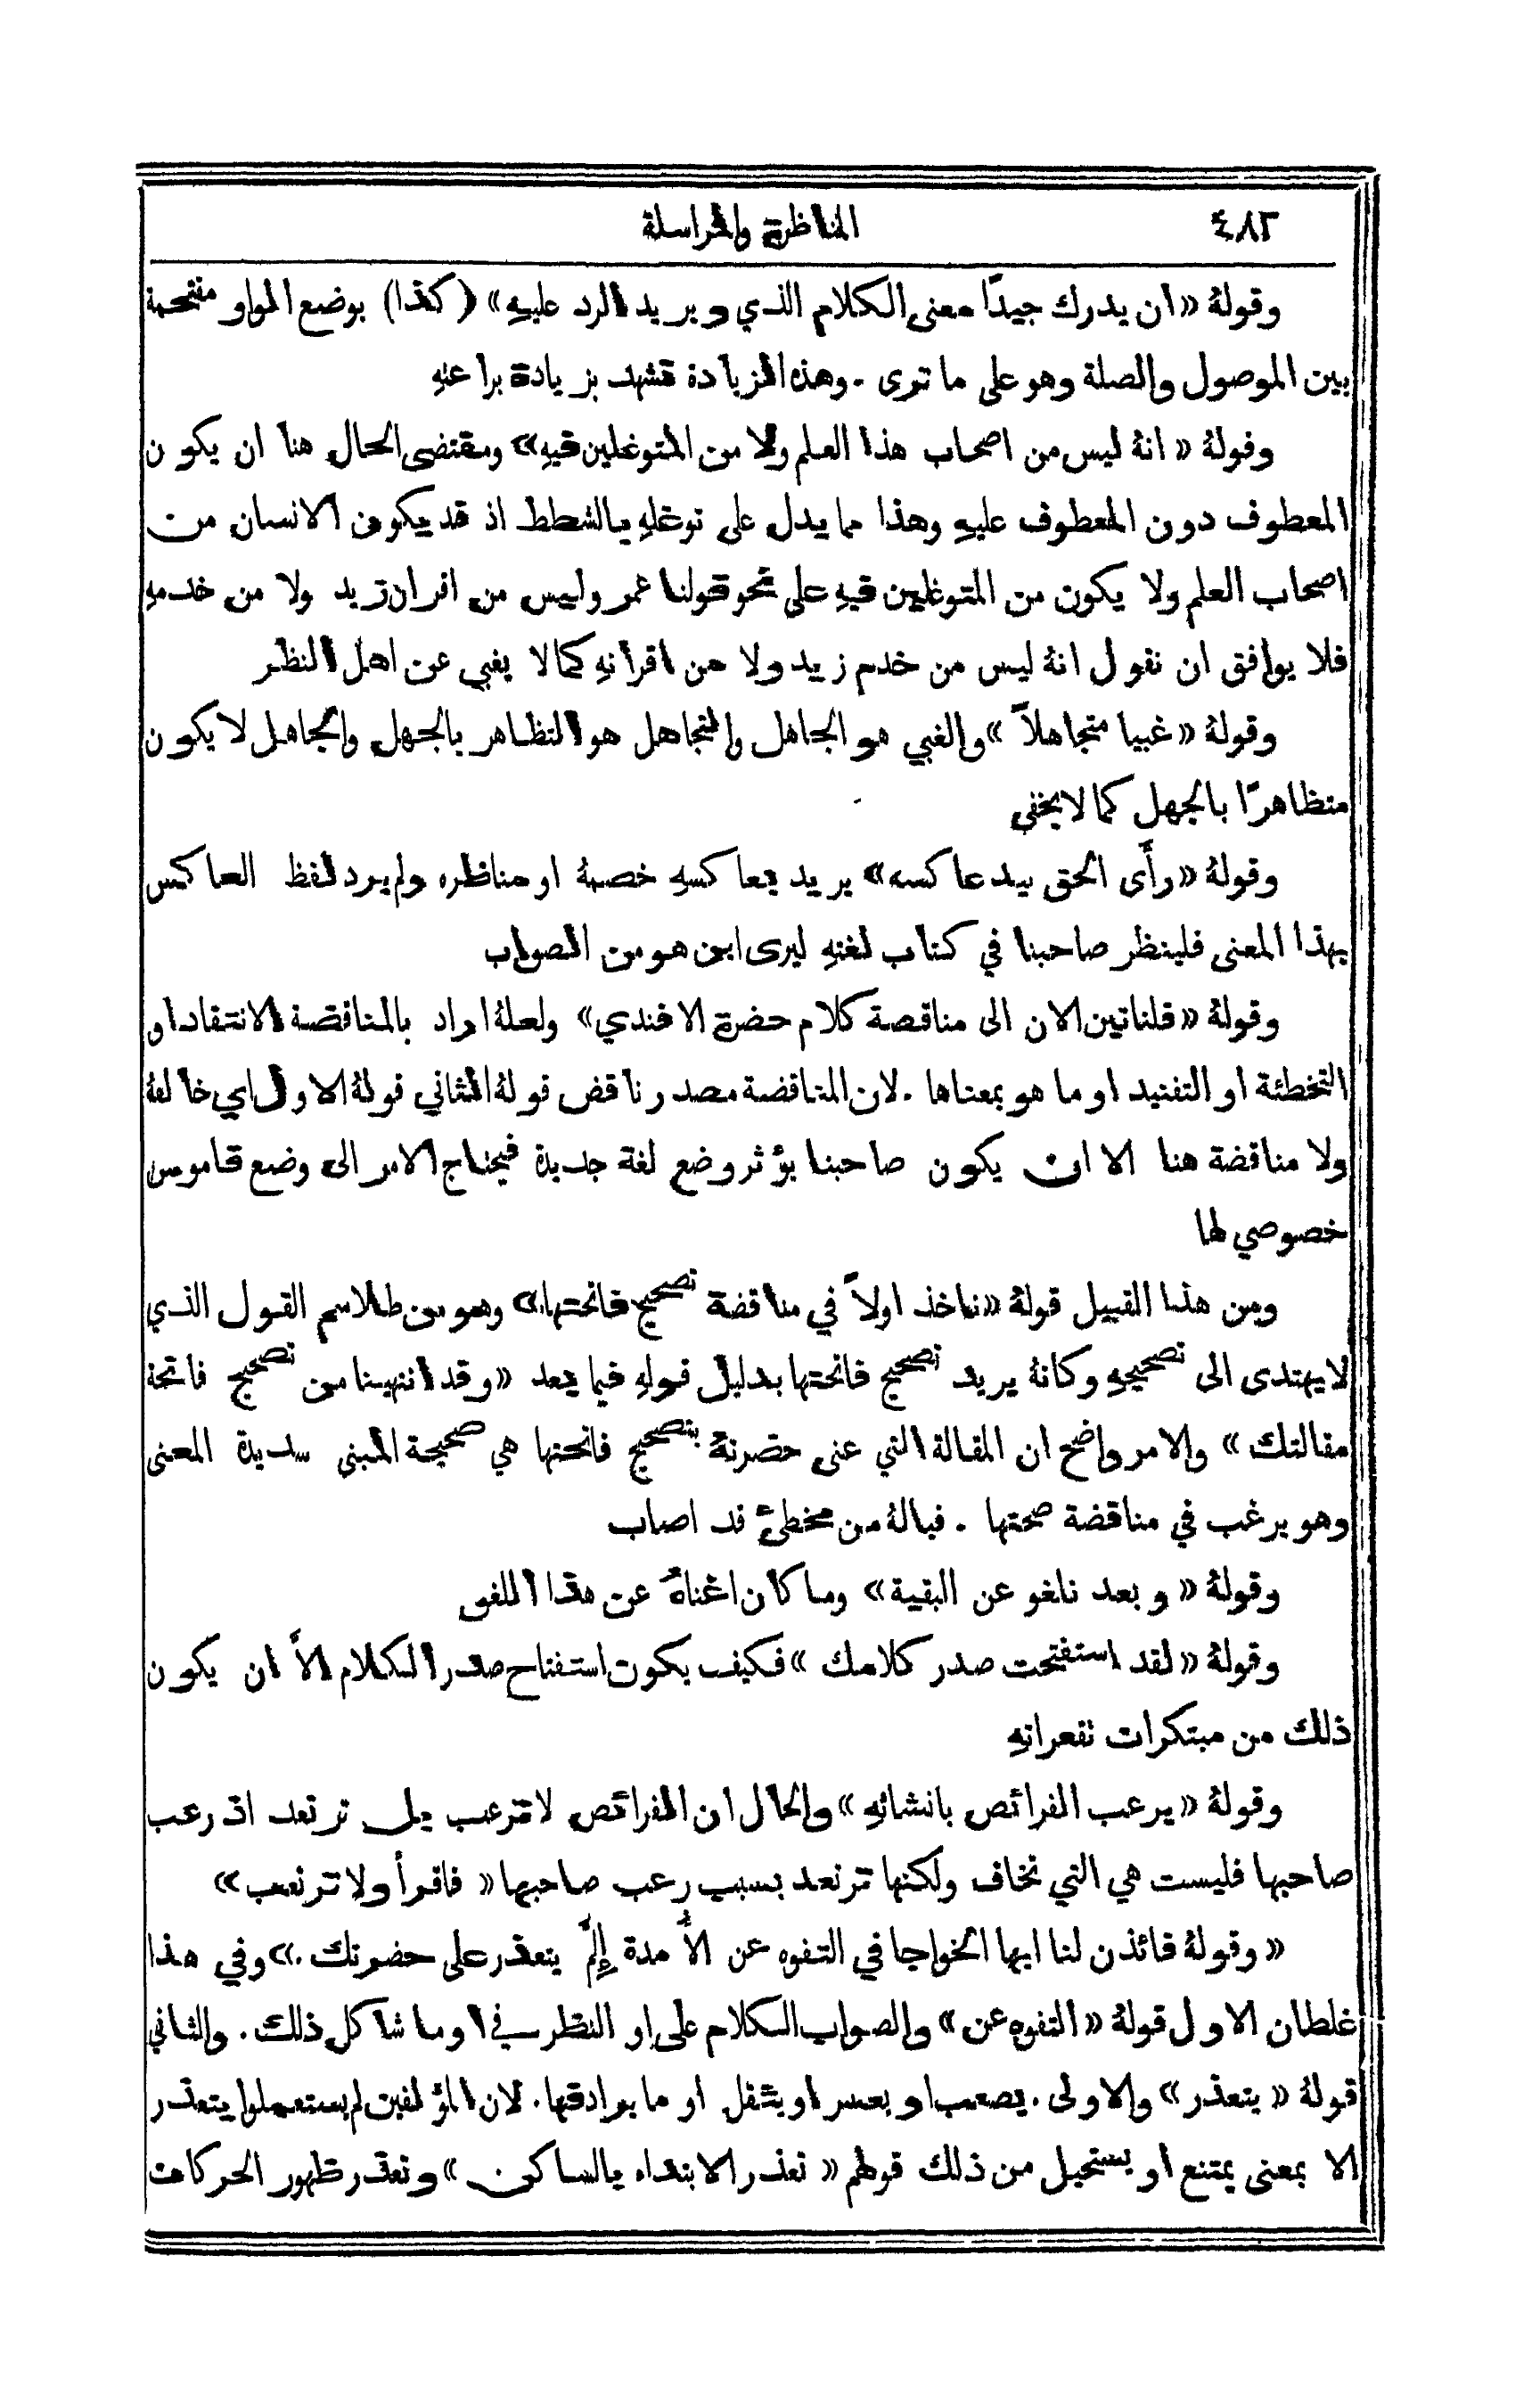 ٤٨٢ المناظرة والمراسلة
وقولهُ «ان يدرك جيدًا معنى الكلام الذي ويريد الرد عليهِ» (كذا) بوضع الواو مقتحمة
بين الموصول والصلة وهو على ما ترى . وهذه الزيادة تشهد بزيادة براعتهِ
وقولهُ «انهُ ليس من اصحاب هذا العلم ولا من المتوغلين فيهِ» ومقتضى الحال هنا ان يكون
المعطوف دون المعطوف عليهِ وهذا مما يدل على توغلهِ بالشطط اذ قد يكون الانسان من
اصحاب العلم ولا يكون من المتوغلين فيهِ على نحو قولنا عمرو ليس من اقران زيد ولا من خدمهِ
فلا يوافق ان نقول انهُ ليس من خدم زيد ولا من اقرانهِ كما لا يغبى عن اهل النظر
وقولهُ «غبيا متجاهلاً» والغبي هو الجاهل والمتجاهل هو المتظاهر بالجهل والجاهل لا يكون
متظاهرًا بالجهل كما لا يخفى
وقولهُ «رأَى الحق بيد عاكسه» يريد بعاكسهِ خصمهُ او مناظره ولم يرد لفظ العاكس
بهذا المعنى فلينظر صاحبنا في كتاب لغتهِ ليرى اين هو من الصواب
وقولهُ «فلناتين الان الى مناقصة كلام حضرة الافندي» ولعلهُ اراد بالمناقصة الانتقاد او
التخطئة او التفنيد او ما هو بمعناها . لان المناقضة مصدر ناقض قولهُ الثاني قولهُ الاول اي خالفهُ
ولا مناقضة هنا الا ان يكون صاحبنا يؤثر وضع لغة جديدة فيحتاج الامر الى وضع قاموس
خصوصي لها
ومن هذا القبيل قولهُ «ناخذ اولاً في مناقضة تصحيح فاتحتها» وهو من طلاسم القول الذي
لا يهتدى الى تصحيحهِ وكانهُ يريد تصحيح فاتحتها بدليل قولهِ فيما بعد «وقد انتهينا من تصحيح فاتحة
مقالتك» والامر واضح ان المقالة التي عنى حضرتهُ بتصحيح فاتحتها هي صحيحة المبنى سديدة المعنى
وهو يرغب في مناقضة صحتها . فيالهُ من مخطئ قد اصاب
وقولهُ «وبعد نلغو عن البقية» وما كان اغناهُ عن هذا اللغو
وقولهُ «لقد استفتحت صدر كلامك» فكيف يكون استفتاح صدر الكلام الاَّ ان يكون
ذلك من مبتكرات تقعراتهِ
وقولهُ «يرعب الفرائص بانشائهِ» والحال ان الفرائص لا ترعب بل ترتعد اذ رعب
صاحبها فليست هي التي تخاف ولكنها ترتعد بسبب رعب صاحبها «فاقرأ ولا ترتعب»
«وقولهُ فائذن لنا ايها الخواجا في التفوه عن الأَّ مدة إِلمَّ يتعذر على حضرتك.» وفي هذا
غلطان الاول قولهُ «التفوه عن» والصواب الكلام على او النظر في او ما شاكل ذلك. والثاني
قولهُ «يتعذر» والاولى . يصعب او يعسر او يثقل او ما يرادفها. لان المؤلفين لم يستعملوا يتعذر
الا بمعنى يمتنع او يستحيل من ذلك قولهم «تعذر الابتداء بالساكن» وتعذر ظهور الحركات